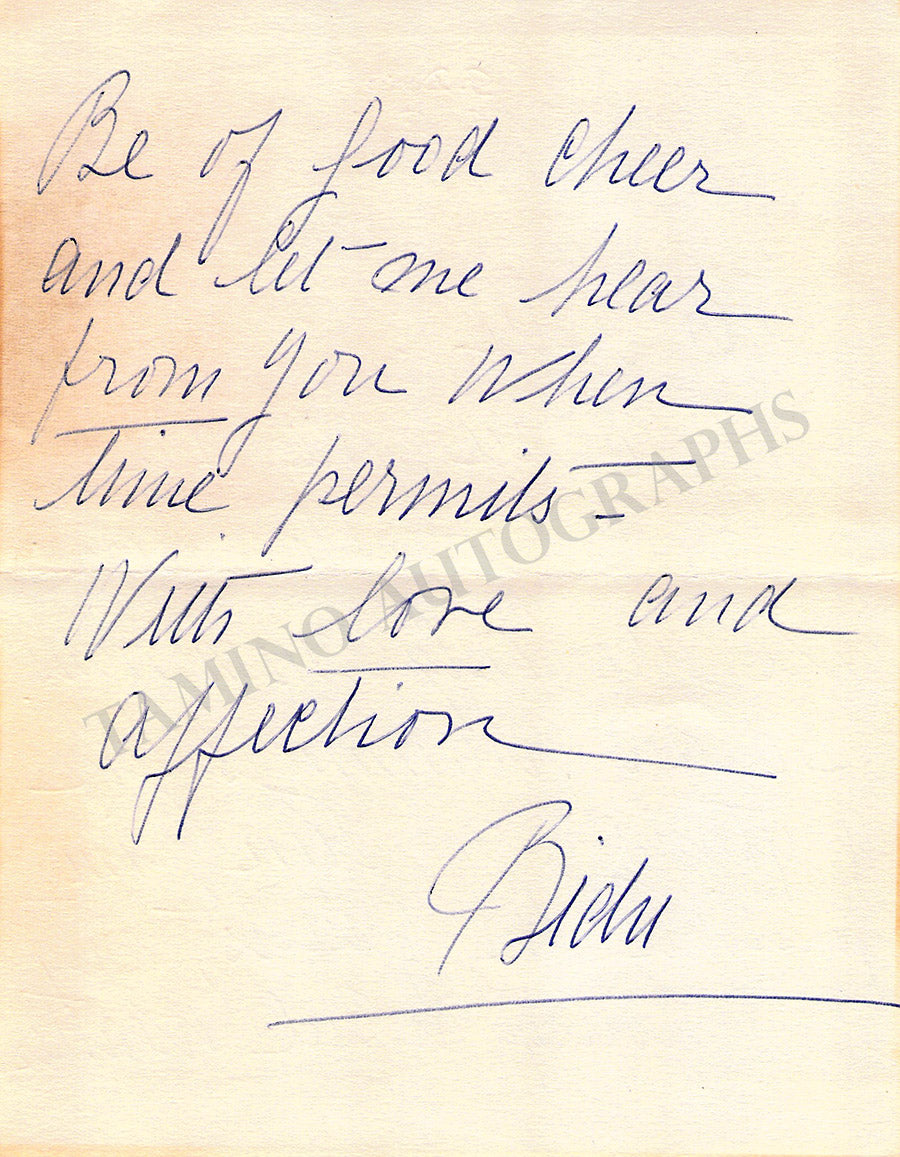 Be of good cheer
and let me hear
from you when
time permits –
With love and
affection
Bidu
TAMINO AUTOGRAPHS